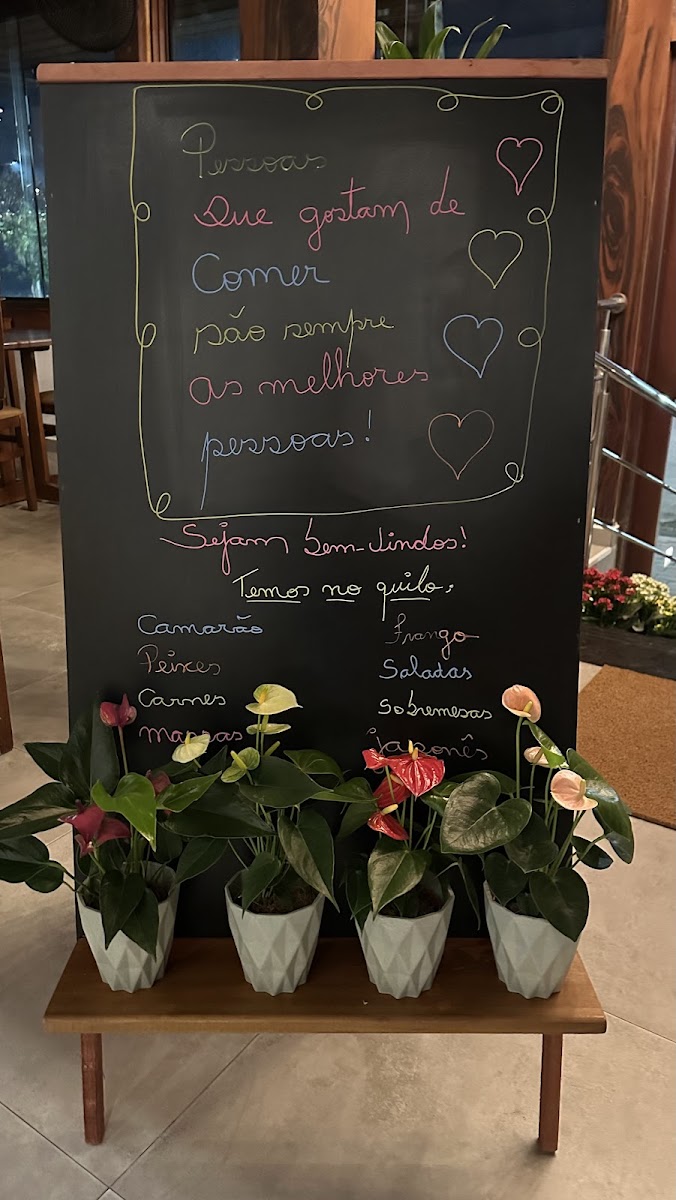 Pessoas
Que gostam de
Comer
são sempre
as melhores
pessoas!
Sejam bem-vindos!
Temos no quilo:
Camarão
Peixes
Carnes
massas
Frango
Saladas
Sobremesas
japonês